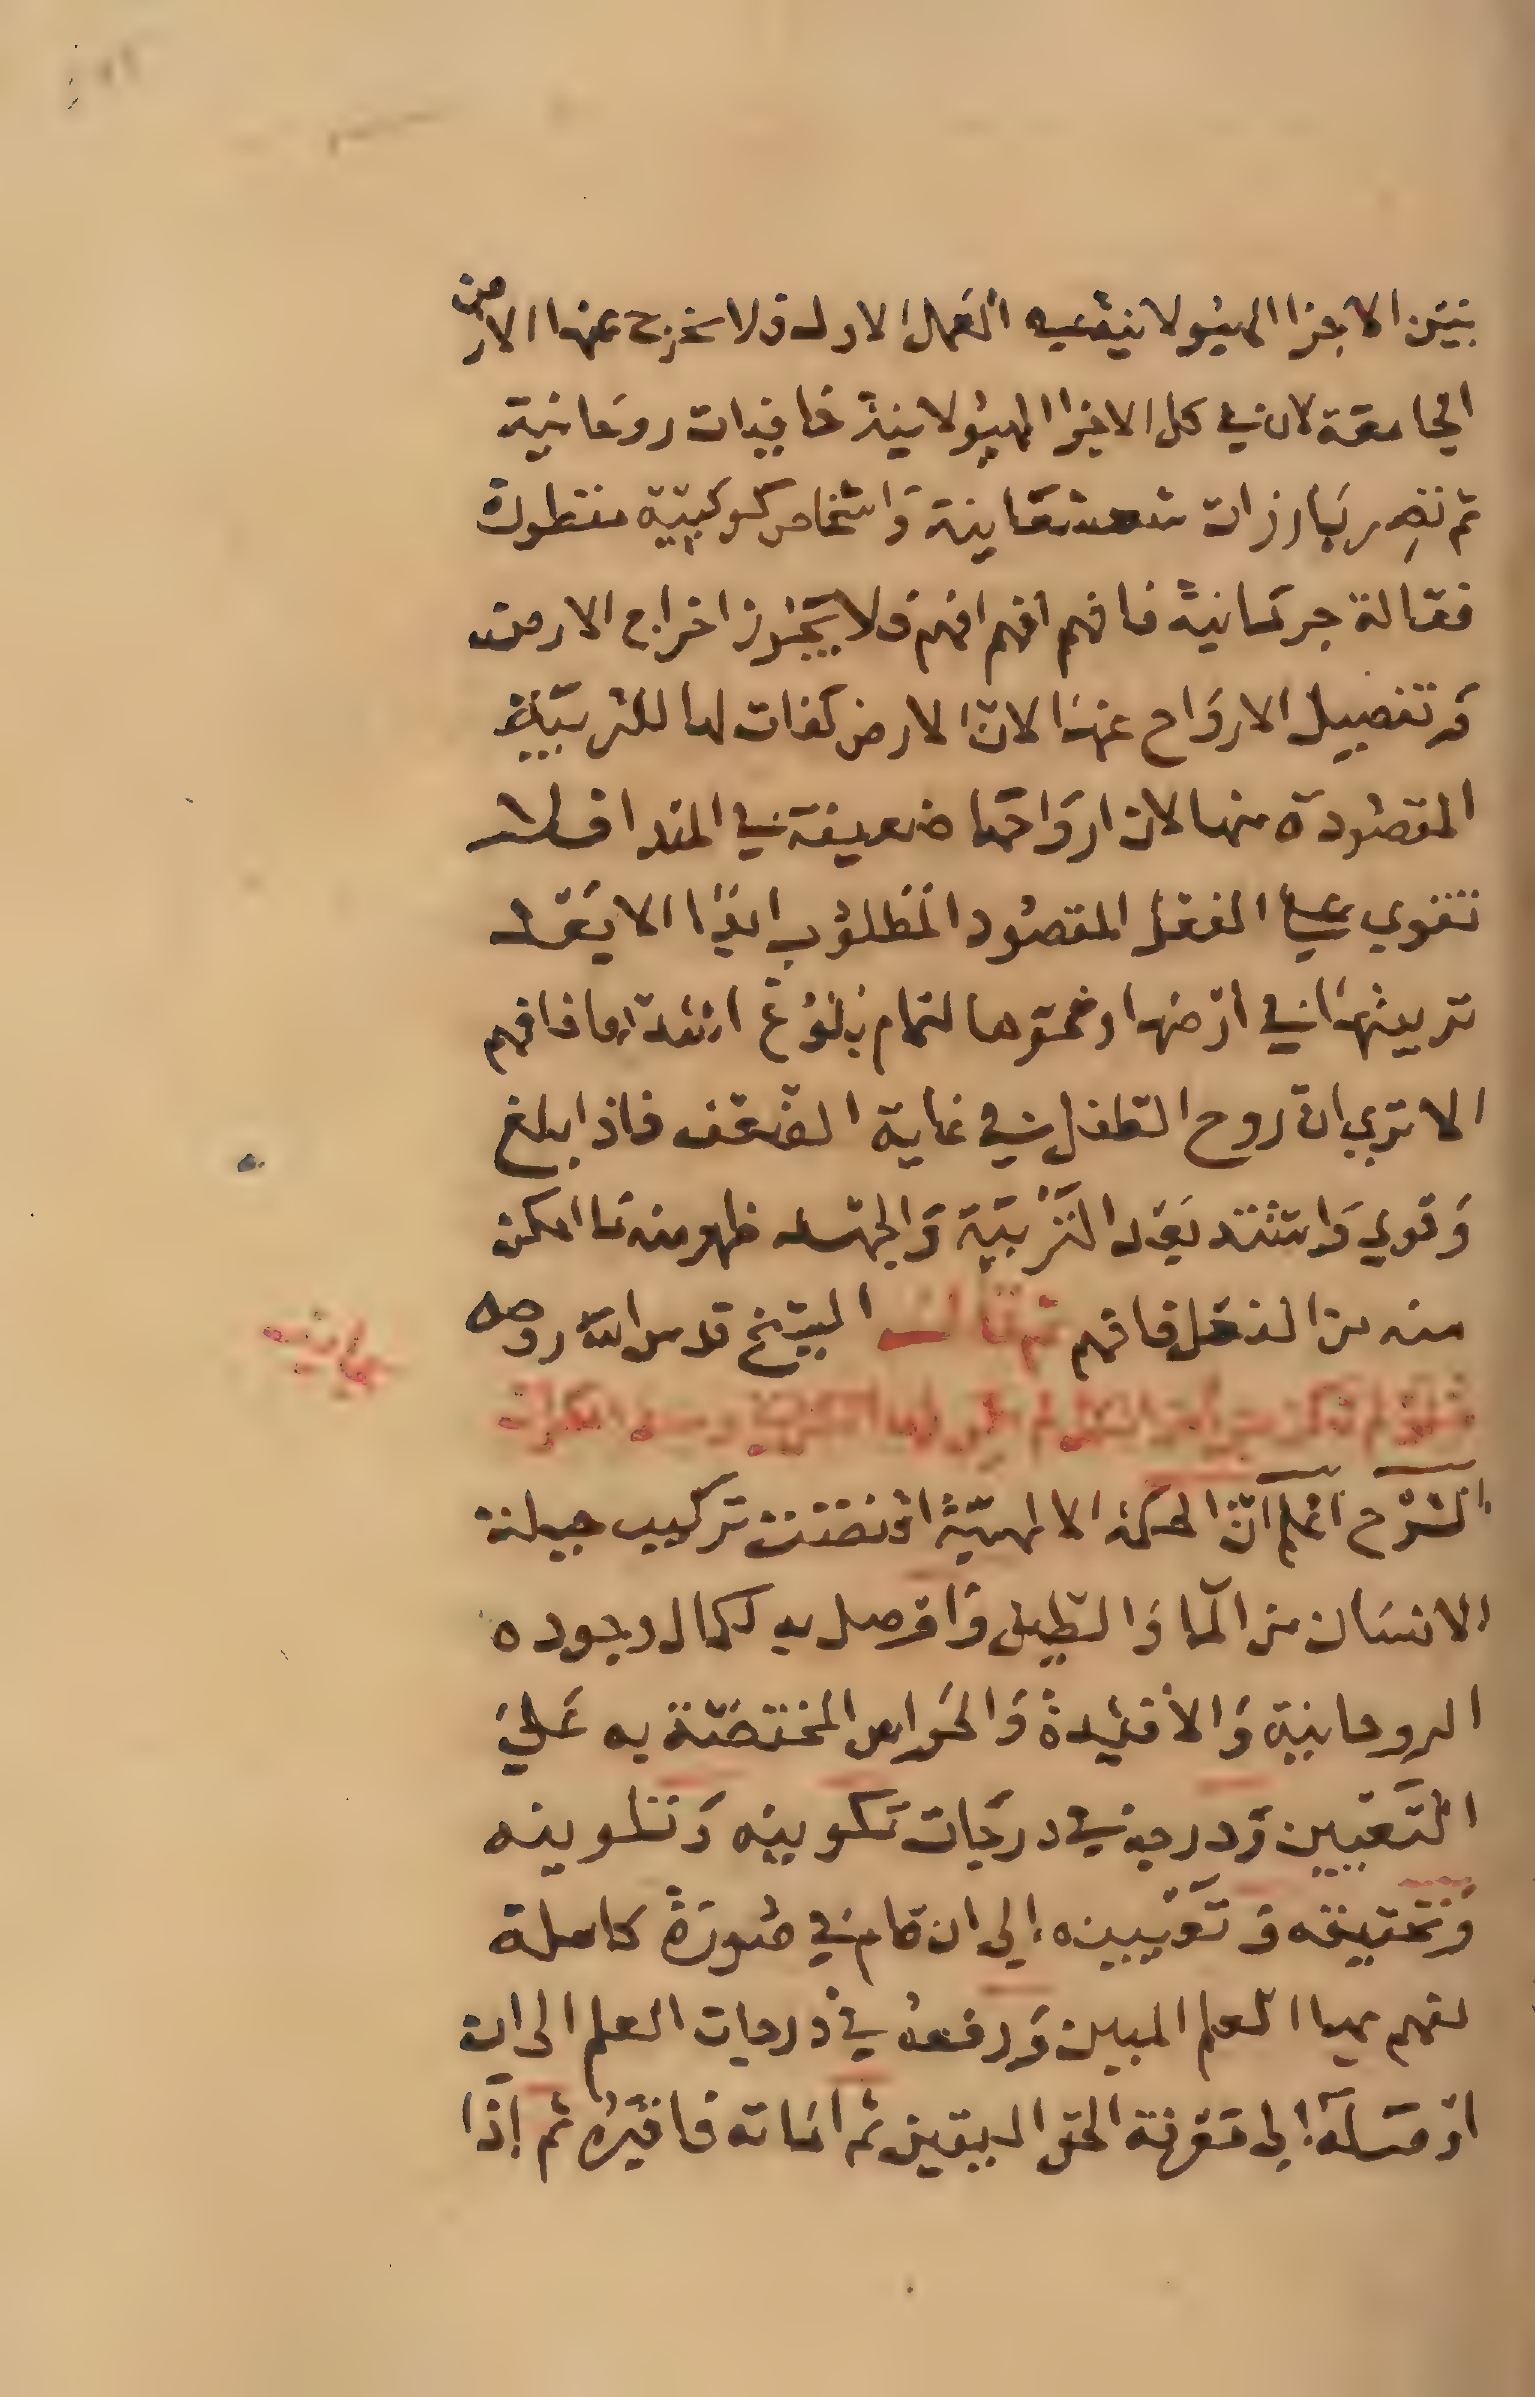 بين الاجزا الهيولانية في العمل الاول ولا يخرج عنها الارض
الجامعة لان في كل الاجزا الهيولانية خافيات روحانية
ثم تصير بارزات شعشعانية واشخاص كوكبية منظورة
فعالة جرمانية فافهم افهم افهم ولا يجوز اخراج الارض
وتفصيل الارواح عنها لان الارض كفات لها للتربية
المقصودة منها لان ارواحها ضعيفة في المبدا فلا
تقوي علي الفعل المقصود المطلوب ابدا الا بعد
تربيتها في ارضها ونموها لتمام بلوغ اشدها فافهم
الا تري ان روح الطفل في غاية الضعف فاذا بلغ
وقوي واشتد بعد التربية والجهد ظهر منه ما امكن
منه من الفعل فافهم ثم قال الشيخ قدس الله روحه
الشرح اعلم ان الحكمة الالهية اقتضت تركيب جبلة
الانسان من الما والطين واوصل به لكمال وجوده
الروحانية والافئدة والحواس المختصة به علي
التعيين ودرجه في درجات تكوينه وتلوينه
وتحقيقه وتعيينه الى ان قام في صورة كاملة
لفهم بها العلم المبين ورفعه في درجات العلم الى ان
اوصله الى معرفة الحق اليقين ثم اماته فاقبره ثم اذا